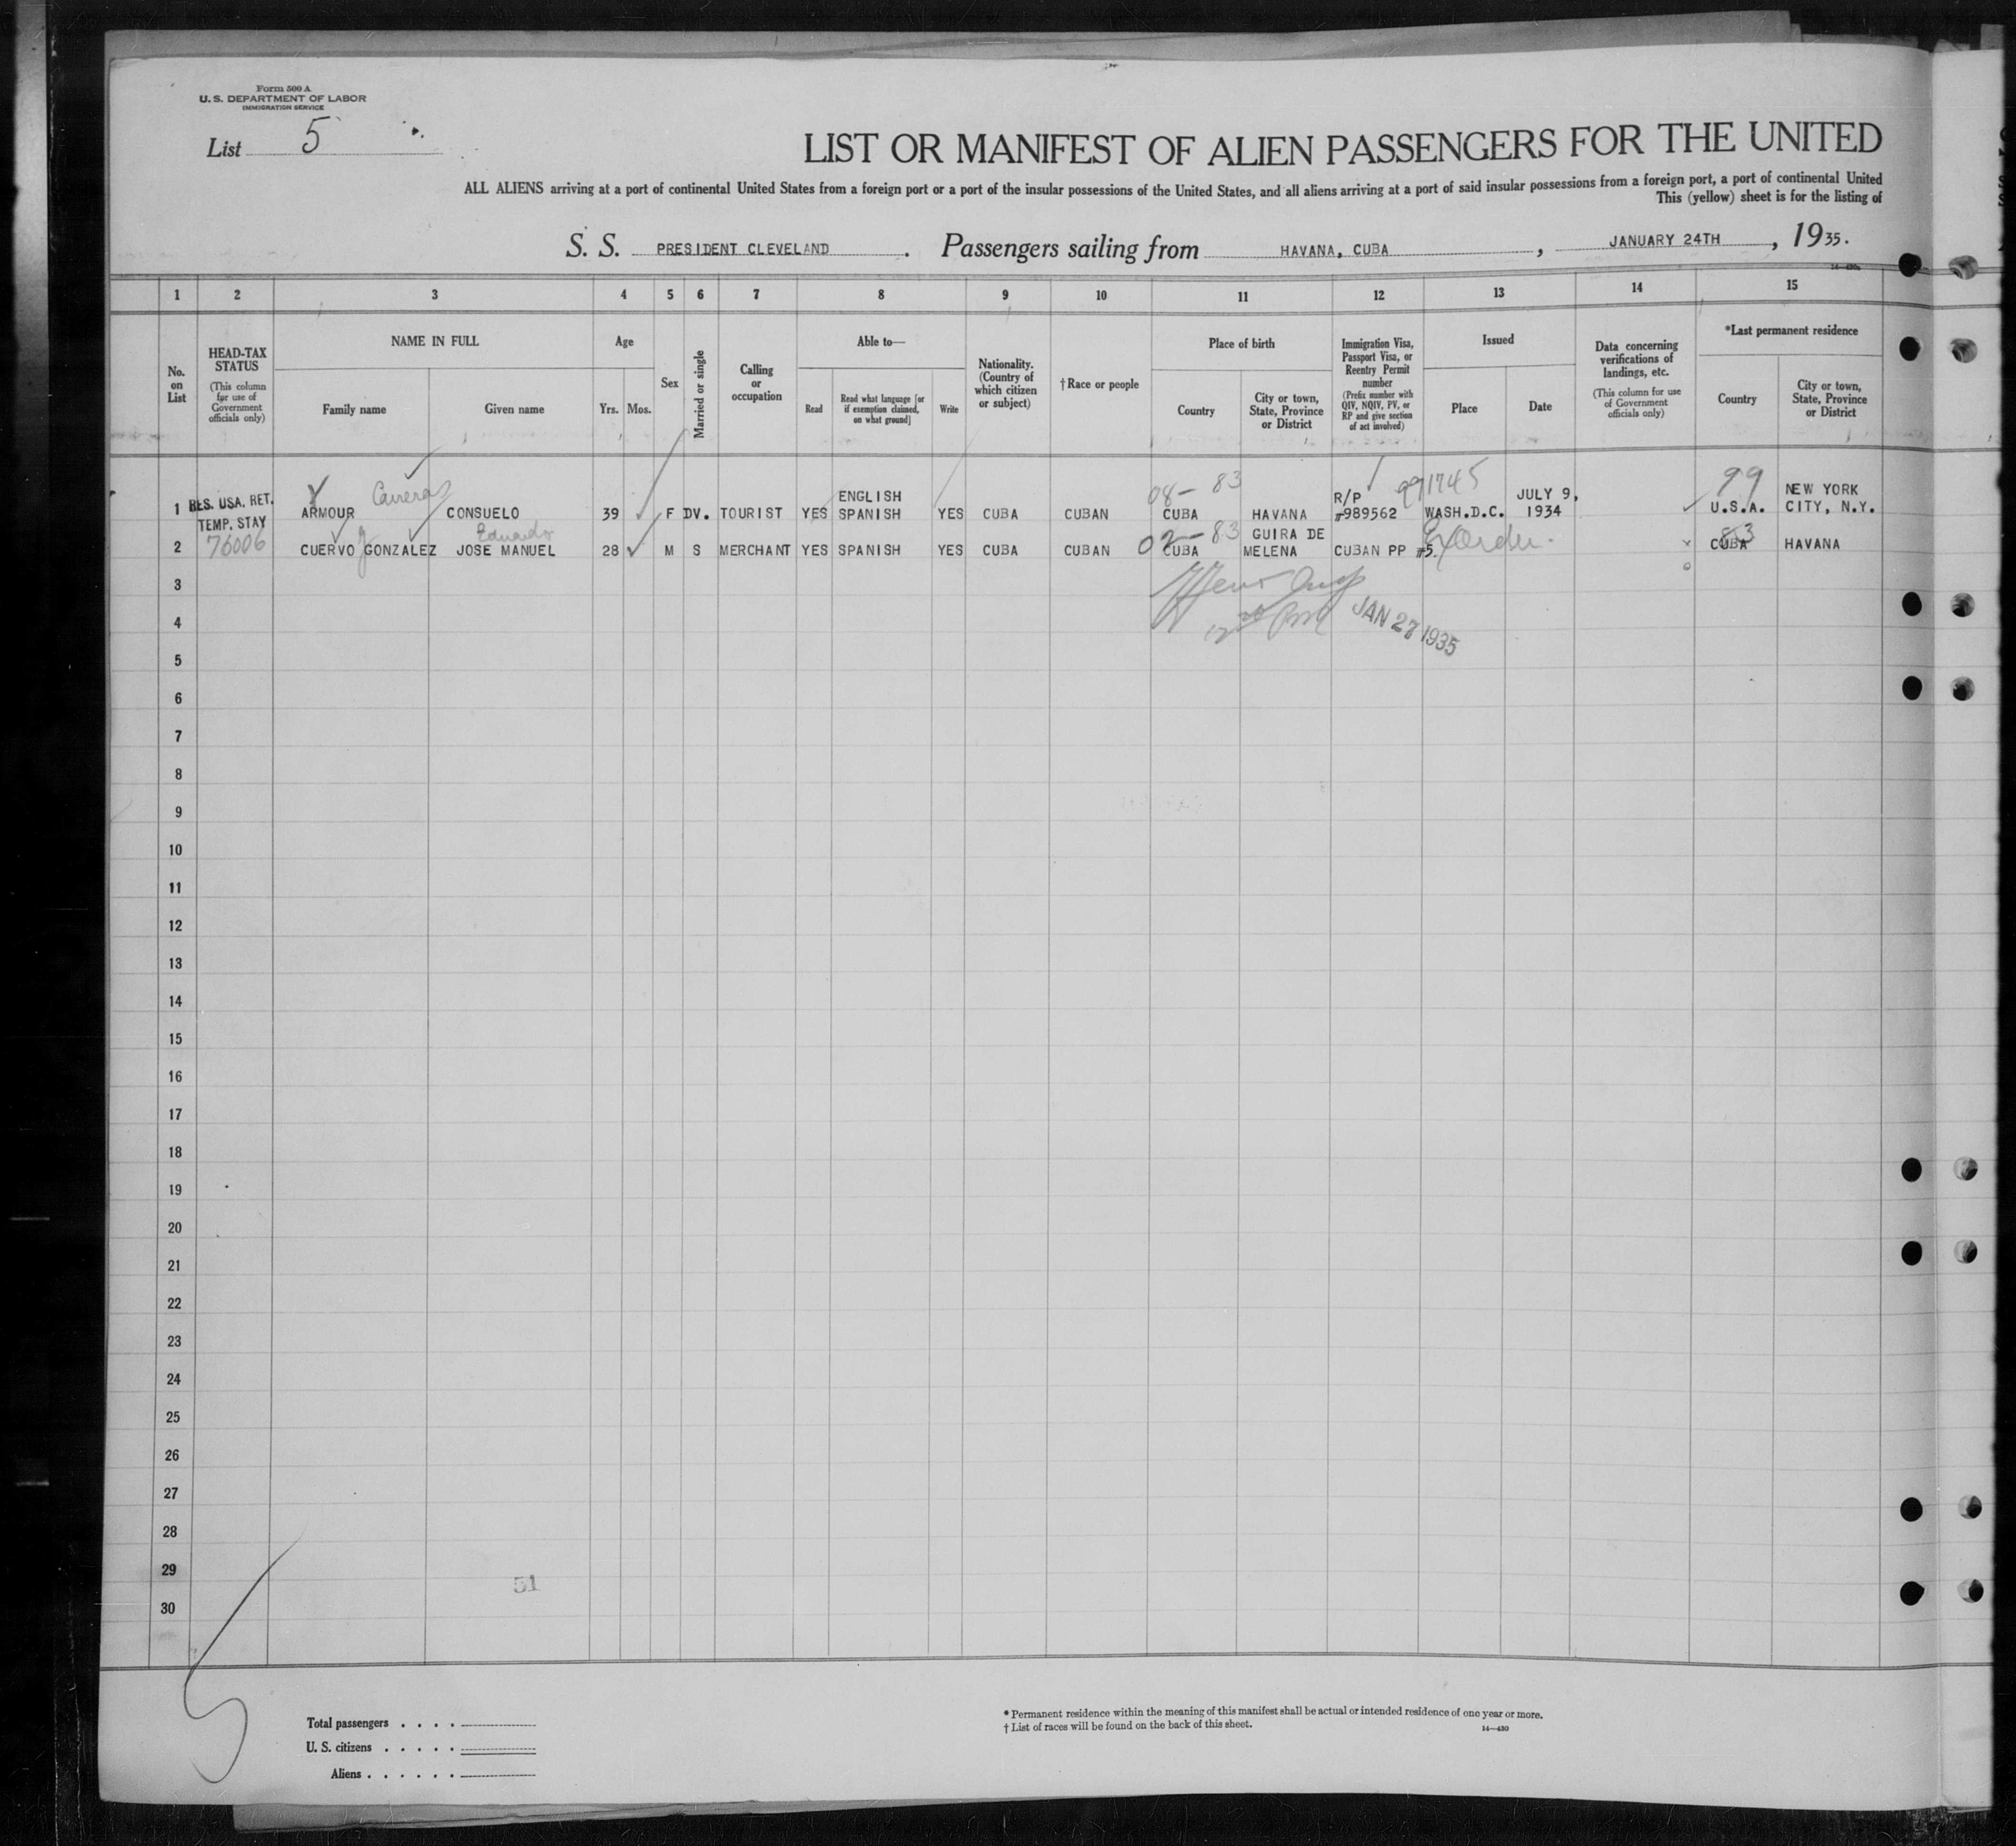 Form 500 A
U. S. DEPARTMENT OF LABOR
IMMIGRATION SERVICE
List 5
LIST OR MANIFEST OF ALIEN PASSENGERS FOR THE UNITED
ALL ALIENS arriving at a port of continental United States from a foreign port or a port of the insular possessions of the United States, and all aliens arriving at a port of said insular possessions from a foreign port, a port of continental United
This (yellow) sheet is for the listing of
S. S. PRESIDENT CLEVELAND. Passengers sailing from HAVANA, CUBA, JANUARY 24TH, 1935.
1 2 3 4 5 6 7 8 9 10 11 12 13 14 15
No. on List
HEAD-TAX STATUS
(This column for use of Government officials only)
NAME IN FULL
Family name
Given name
Age
Yrs. Mos.
Sex
Married or single
Calling or occupation
Able to—
Read
Read what language [or if exemption claimed, on what ground]
Write
Nationality. (Country of which citizen or subject)
†Race or people
Place of birth
Country
City or town, State, Province or District
Immigration Visa, Passport Visa, or Reentry Permit number
(Prefix number with QIV, NQIV, PV, or RP and give section of act involved)
Issued
Place
Date
Data concerning verifications of landings, etc.
(This column for use of Government officials only)
*Last permanent residence
Country
City or town, State, Province or District
Carreras 08- 83 991745 99
1 RES. USA. RET. ARMOUR CONSUELO 39 F DV. TOURIST YES ENGLISH SPANISH YES CUBA CUBAN CUBA HAVANA R/P #989562 WASH.D.C. JULY 9, 1934 U.S.A. NEW YORK CITY, N.Y.
TEMP. STAY Eduardo 02- 83 83
2 76006 CUERVO GONZALEZ JOSE MANUEL 28 M S MERCHANT YES SPANISH YES CUBA CUBAN CUBA GUIRA DE MELENA CUBAN PP #5. CUBA HAVANA
3
4 JAN 27 1935
5
6
7
8
9
10
11
12
13
14
15
16
17
18
19
20
21
22
23
24
25
26
27
28
29
51
30
Total passengers
U. S. citizens
Aliens
* Permanent residence within the meaning of this manifest shall be actual or intended residence of one year or more.
† List of races will be found on the back of this sheet.
14—430